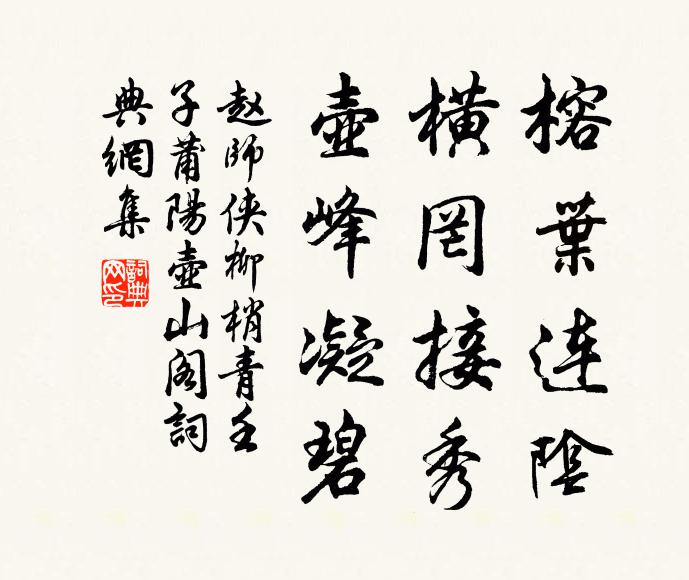 榕葉連陰
橫罔接秀
壺峰凝碧
赵師俠柳梢青壬
子莆陽壺山阁詞
典網集
詞典
网印